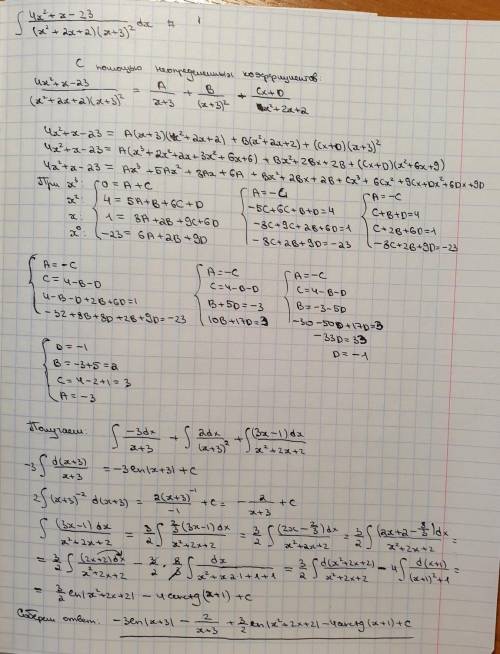 ∫ (4x²+x-23)/((x²+2x+2)(x+3)²) dx =
С помощью неопределенных коэффициентов:
(4x²+x-23)/((x²+2x+2)(x+3)²) = A/(x+3) + B/(x+3)² + (Cx+D)/(x²+2x+2)
4x²+x-23 = A(x+3)(x²+2x+2) + B(x²+2x+2) + (Cx+D)(x+3)²
4x²+x-23 = A(x³+2x²+2x+3x²+6x+6) + Bx²+2Bx+2B + (Cx+D)(x²+6x+9)
4x²+x-23 = Ax³+5Ax²+8Ax+6A + Bx²+2Bx+2B+Cx³+6Cx²+9Cx+Dx²+6Dx+9D
При x³: { 0 = A+C { A=-C { A=-C
x²: 4 = 5A+B+6C+D -5C+6C+B+D=4 C+B+D=4
x: 1 = 8A+2B+9C+6D -8C+9C+2B+6D=1 C+2B+6D=1
x⁰: -23 = 6A+2B+9D -8C+2B+9D=-23 -8C+2B+9D=-23
{ A=-C { A=-C { A=-C
C=4-B-D C=4-B-D C=4-B-D
4-B-D+2B+6D=1 B+5D=-3 B=-3-5D
-32+8B+8D+2B+9D=-23 10B+17D=3 -30-50D+17D=3
-33D=33
D=-1
{ D=-1
B=-3+5=2
C=4-2+1=3
A=-3
Получаем: ∫ -3dx/(x+3) + ∫ 2dx/(x+3)² + ∫ (3x-1)dx/(x²+2x+2)
-3∫ d(x+3)/(x+3) = -3ln|x+3|+C
2∫(x+3)⁻² d(x+3) = 2(x+3)⁻¹/-1 +C = -2/(x+3) +C
∫ (3x-1)dx/(x²+2x+2) = 3/2 ∫ 2/3(3x-1)dx/(x²+2x+2) = 3/2 ∫ (2x-2/3)dx/(x²+2x+2) = 3/2 ∫ (2x+2-8/3)dx/(x²+2x+2) =
= 3/2 ∫ (2x+2)dx/(x²+2x+2) - 3/2·8/3 ∫ dx/(x²+x·2·1+1+1) = 3/2 ∫ d(x²+2x+2)/(x²+2x+2) - 4∫ d(x+1)/((x+1)²+1) =
= 3/2 ln|x²+2x+2| - 4arctg(x+1)+C
Соберем ответ: -3ln|x+3| - 2/(x+3) + 3/2 ln|x²+2x+2| - 4arctg(x+1)+C